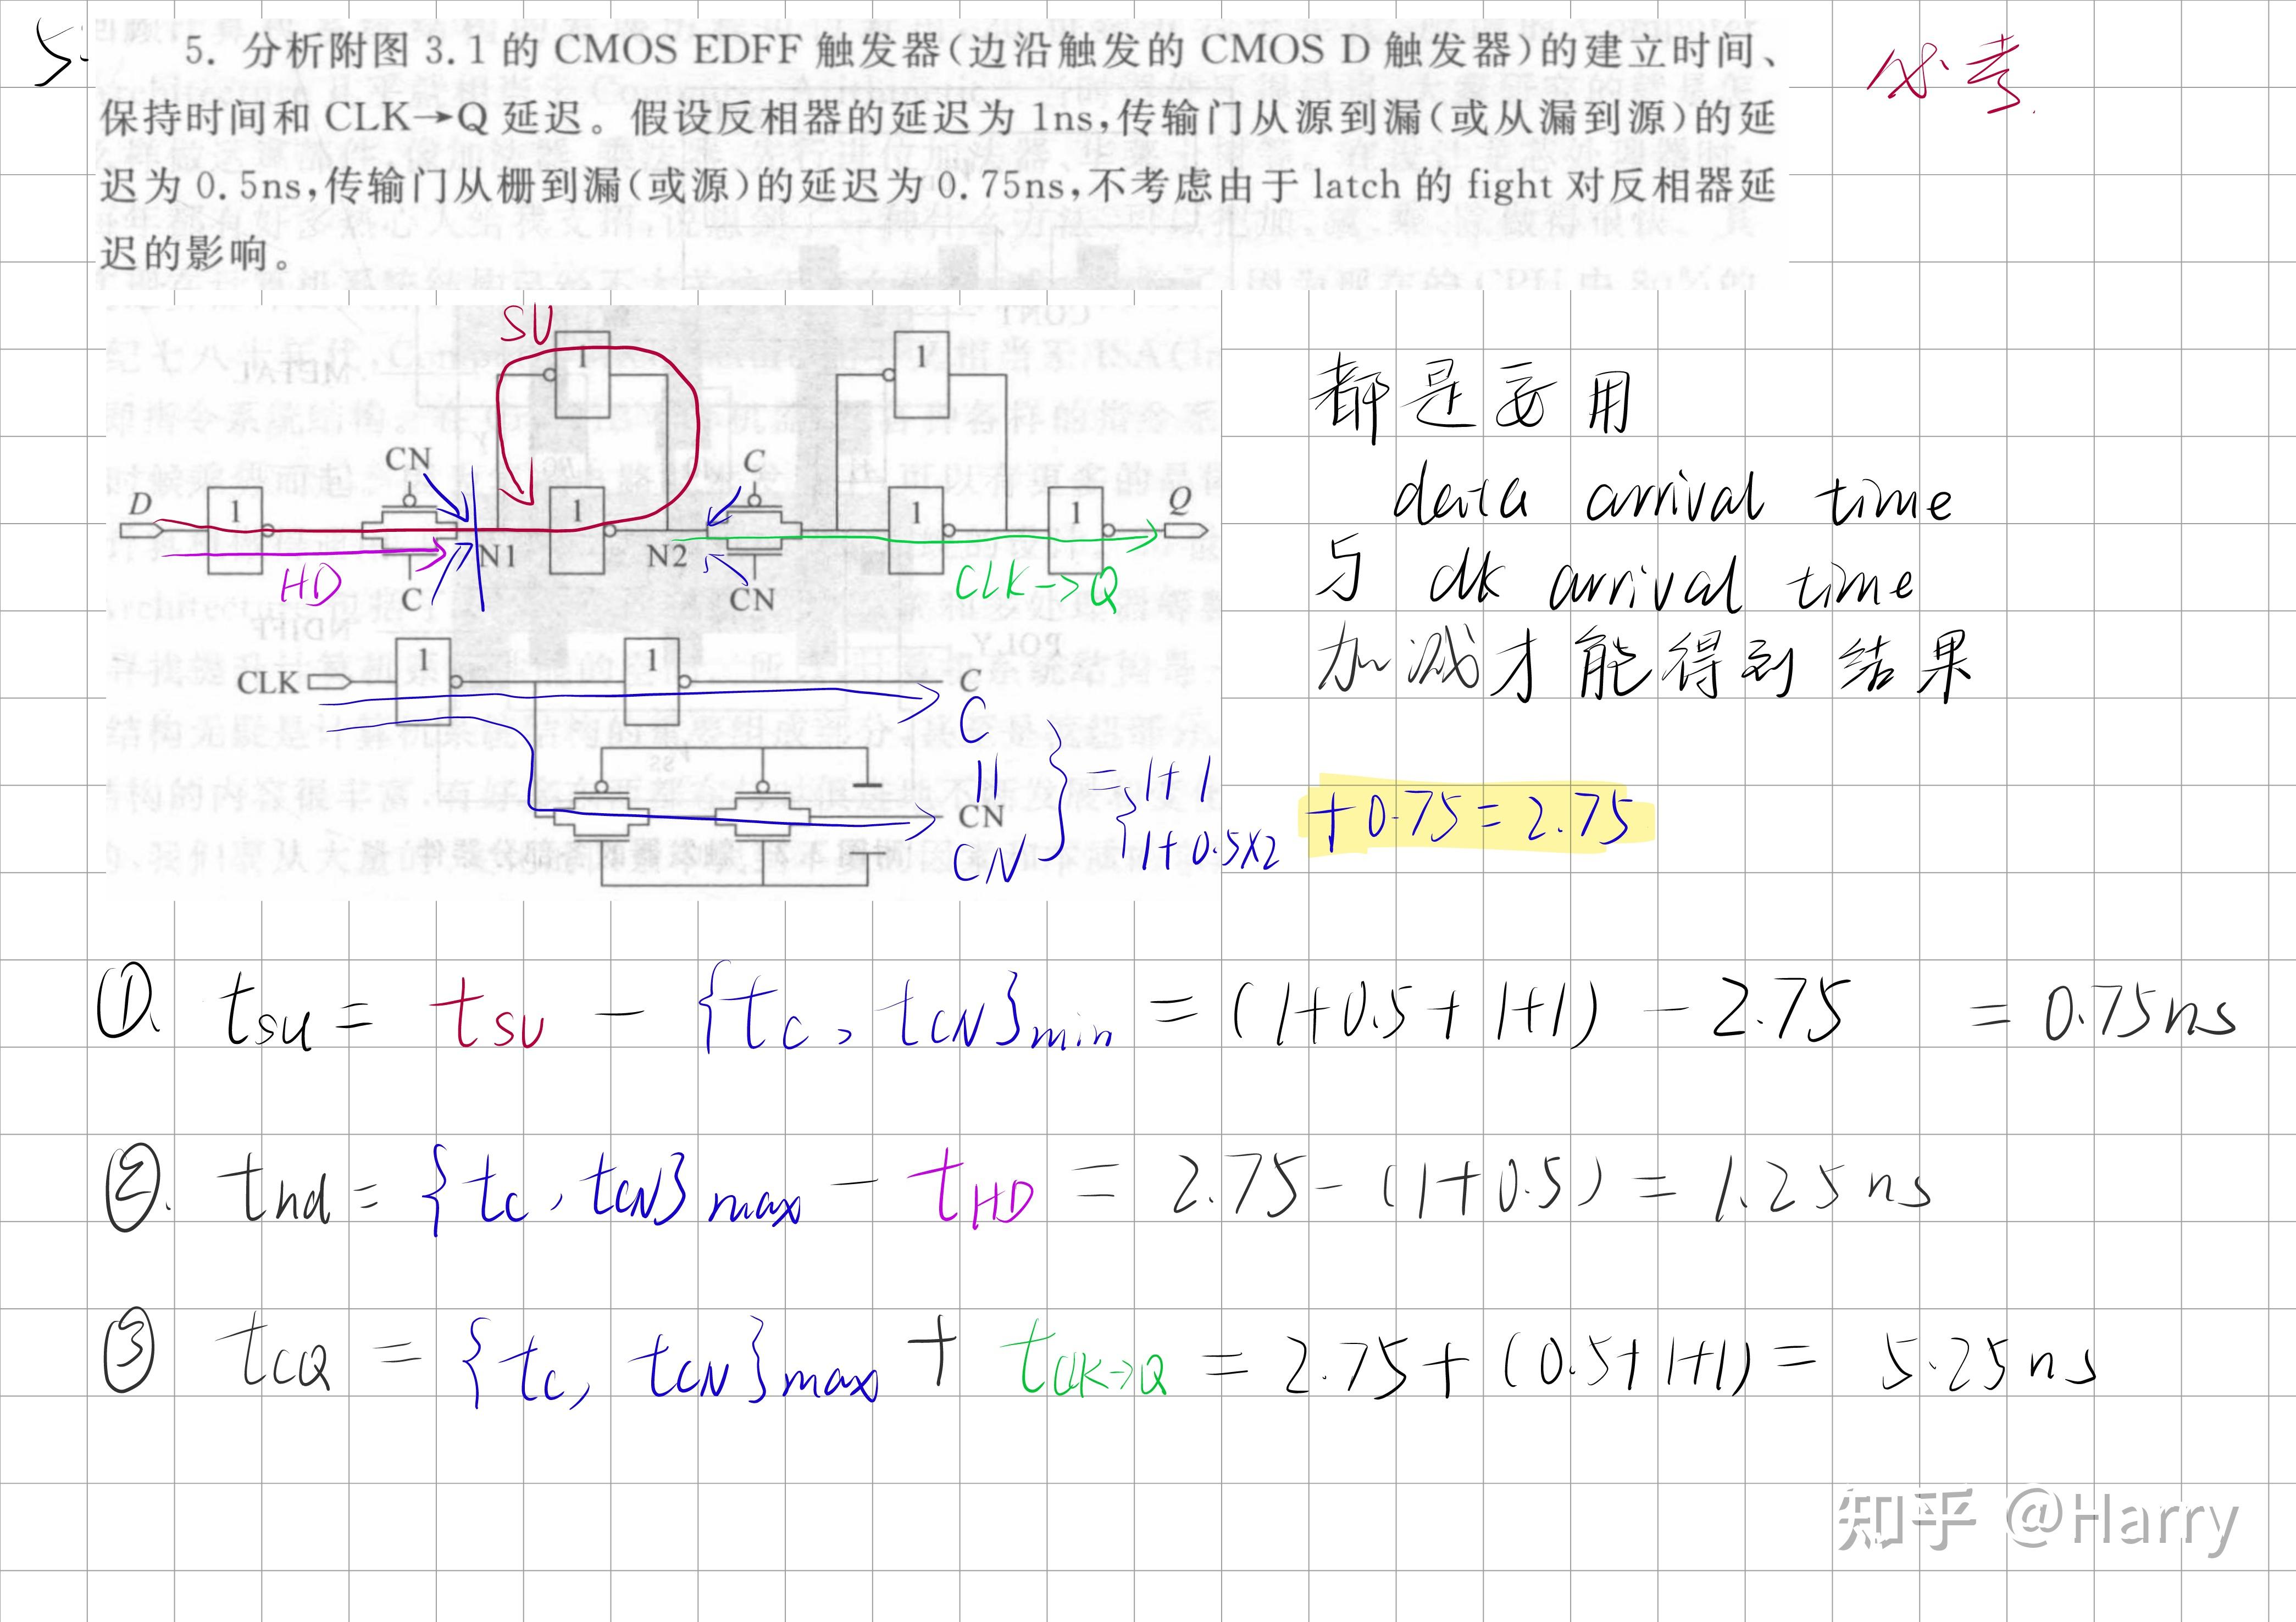 5.
必考
5. 分析附图 3.1 的 CMOS EDFF 触发器(边沿触发的 CMOS D 触发器)的建立时间、
保持时间和 CLK→Q 延迟。假设反相器的延迟为 1ns,传输门从源到漏(或从漏到源)的延
迟为 0.5ns,传输门从栅到漏(或源)的延迟为 0.75ns,不考虑由于 latch 的 fight 对反相器延
迟的影响。
SU
1 1
CN C
D 1 1 1 1 Q
N1 N2
HD C CN CLK->Q
1 1
CLK C
C
CN
C
||
CN
} = { 1+1
1+0.5×2
+0.75=2.75
都是要用
data arrival time
与 clk arrival time
加减才能得到结果
①. tsu = tSU - {tC, tCN}min = (1+0.5+1+1) - 2.75 = 0.75ns
②. thd = {tC, tCN}max - tHD = 2.75 - (1+0.5) = 1.25ns
③ tCQ = {tC, tCN}max + tCLK->Q = 2.75+(0.5+1+1) = 5.25ns
知乎 @Harry